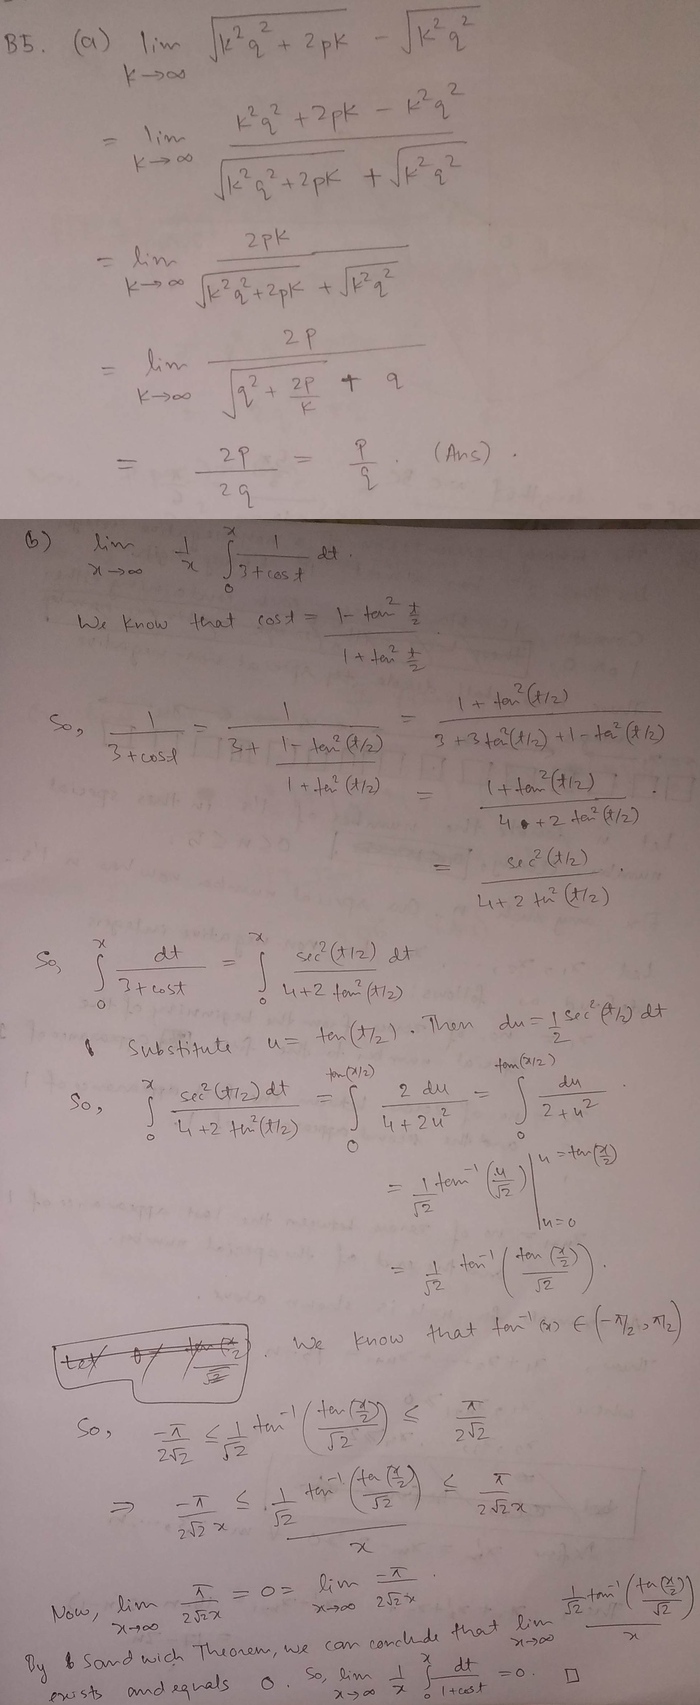 B5. (a) lim k→∞ √(k²q² + 2pk) - √(k²q²)
= lim k→∞ (k²q² + 2pk - k²q²) / (√(k²q² + 2pk) + √(k²q²))
= lim k→∞ 2pk / (√(k²q² + 2pk) + √(k²q²))
= lim k→∞ 2p / (√(q² + 2p/k) + q)
= 2p/2q = p/q . (Ans) .
(b) lim x→∞ 1/x ∫₀ˣ 1/(3+cos t) dt.
We know that cos t = (1 - tan² t/2) / (1 + tan² t/2).
So, 1/(3+cos t) = 1/(3 + (1 - tan²(t/2))/(1 + tan²(t/2))) = (1 + tan²(t/2)) / (3 + 3 tan²(t/2) + 1 - tan²(t/2))
= (1 + tan²(t/2)) / (4 + 2 tan²(t/2)).
= sec²(t/2) / (4 + 2 tan²(t/2)).
So, ∫₀ˣ dt/(3+cos t) = ∫₀ˣ sec²(t/2) dt / (4 + 2 tan²(t/2))
Substitute u = tan(t/2). Then du = 1/2 sec²(t/2) dt
So, ∫₀ˣ sec²(t/2) dt / (4 + 2 tan²(t/2)) = ∫₀^tan(x/2) 2 du / (4 + 2u²) = ∫₀^tan(x/2) du / (2 + u²).
= 1/√2 tan⁻¹(u/√2) |u=0 u=tan(x/2)
= 1/√2 tan⁻¹(tan(x/2)/√2).
We know that tan⁻¹(x) ∈ (-π/2, π/2)
So, -π/2√2 ≤ 1/√2 tan⁻¹(tan(x/2)/√2) ≤ π/2√2
⇒ -π/2√2x ≤ (1/√2 tan⁻¹(tan(x/2)/√2)) / x ≤ π/2√2x
Now, lim x→∞ π/2√2x = 0 = lim x→∞ -π/2√2x.
By Sandwich Theorem, we can conclude that lim x→∞ (1/√2 tan⁻¹(tan(x/2)/√2)) / x
exists and equals 0. So, lim x→∞ 1/x ∫₀ˣ dt/(1+cos t) = 0. □